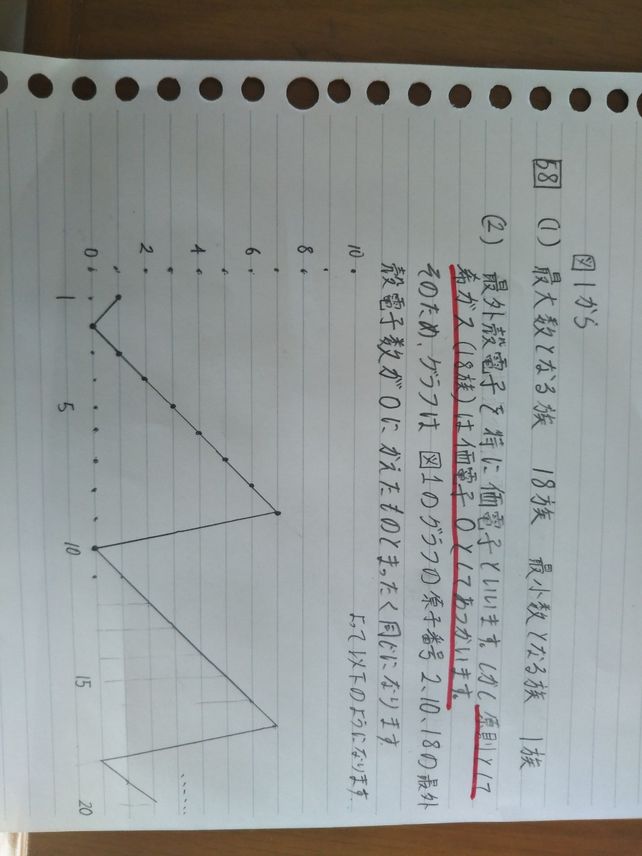 図1から
58 (1) 最大数となる族 18族 最小数となる族 1族
(2) 最外殻電子を特に価電子といいます。しかし原則として
希ガス(18族)は価電子0としてあつかいます。
そのため、グラフは 図1のグラフの原子番号 2、10、18の最外
殻電子数が0にかえたものとまったく同じになります。
よって以下のようになります。
10
8
6
4
2
0
1 5 10 15 20